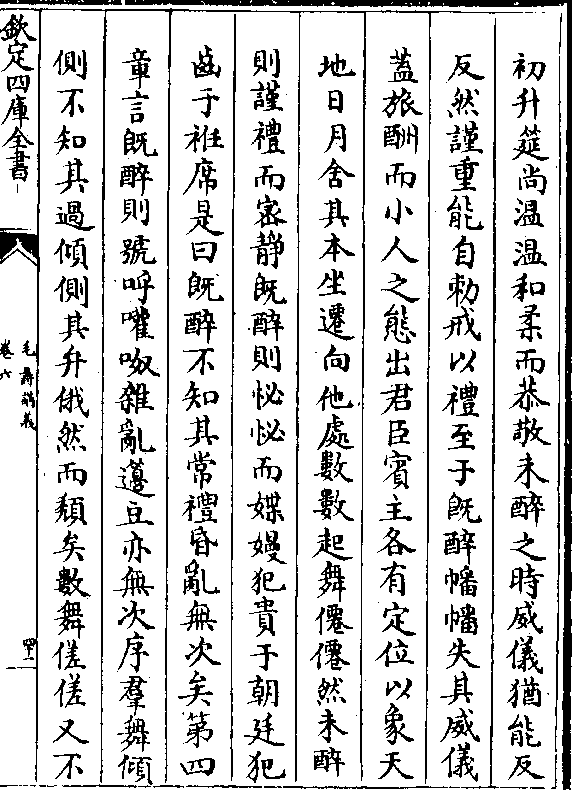 初升筵尚温温和柔而恭敬未醉之時威儀猶能反
反然謹重能自勅戒以禮至于既醉幡幡失其威儀
蓋旅酬而小人之態出君臣賓主各有定位以象天
地日月舍其本坐遷向他處數數起舞僊僊然未醉
則謹禮而密静既醉則怭怭而媟嫚犯貴于朝廷犯
齒于袵席是曰既醉不知其常禮昏亂無次矣第四
章言既醉則號呼嚾呶雜亂籩豆亦無次序羣舞傾
側不知其過傾側其弁俄然而頽矣數舞傞傞又不
欽定四庫全書
毛詩講義
卷六
四十二